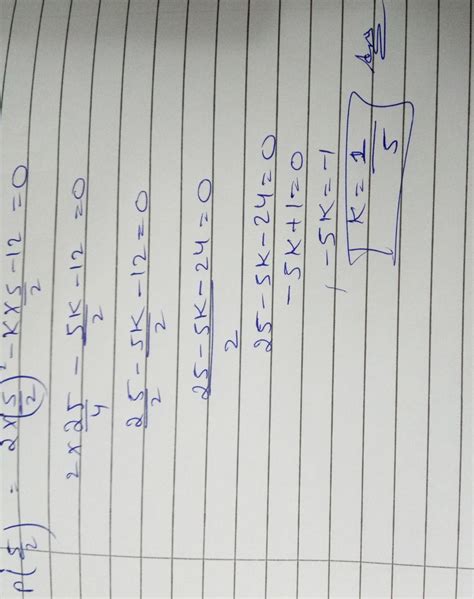 P(5/2) = 2×(5/2)² - K×5/2 - 12 = 0
2×25/4 - 5K/2 - 12 = 0
25/2 - 5K/2 - 12 = 0
25 - 5K - 24/2 = 0
25 - 5K - 24 = 0
- 5K + 1 = 0
- 5K = -1
K = 1/5 Ans